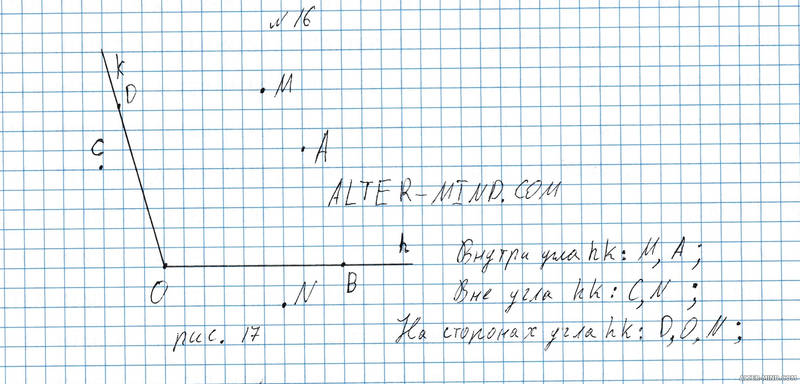 № 16
k
D
M
C
A
ALTER-MIND.COM
h
Внутри угла hk: M, A;
O
B
N
Вне угла hk: C, N;
На сторонах угла hk: D, O, N;
рис. 17
ALTER-MIND.COM